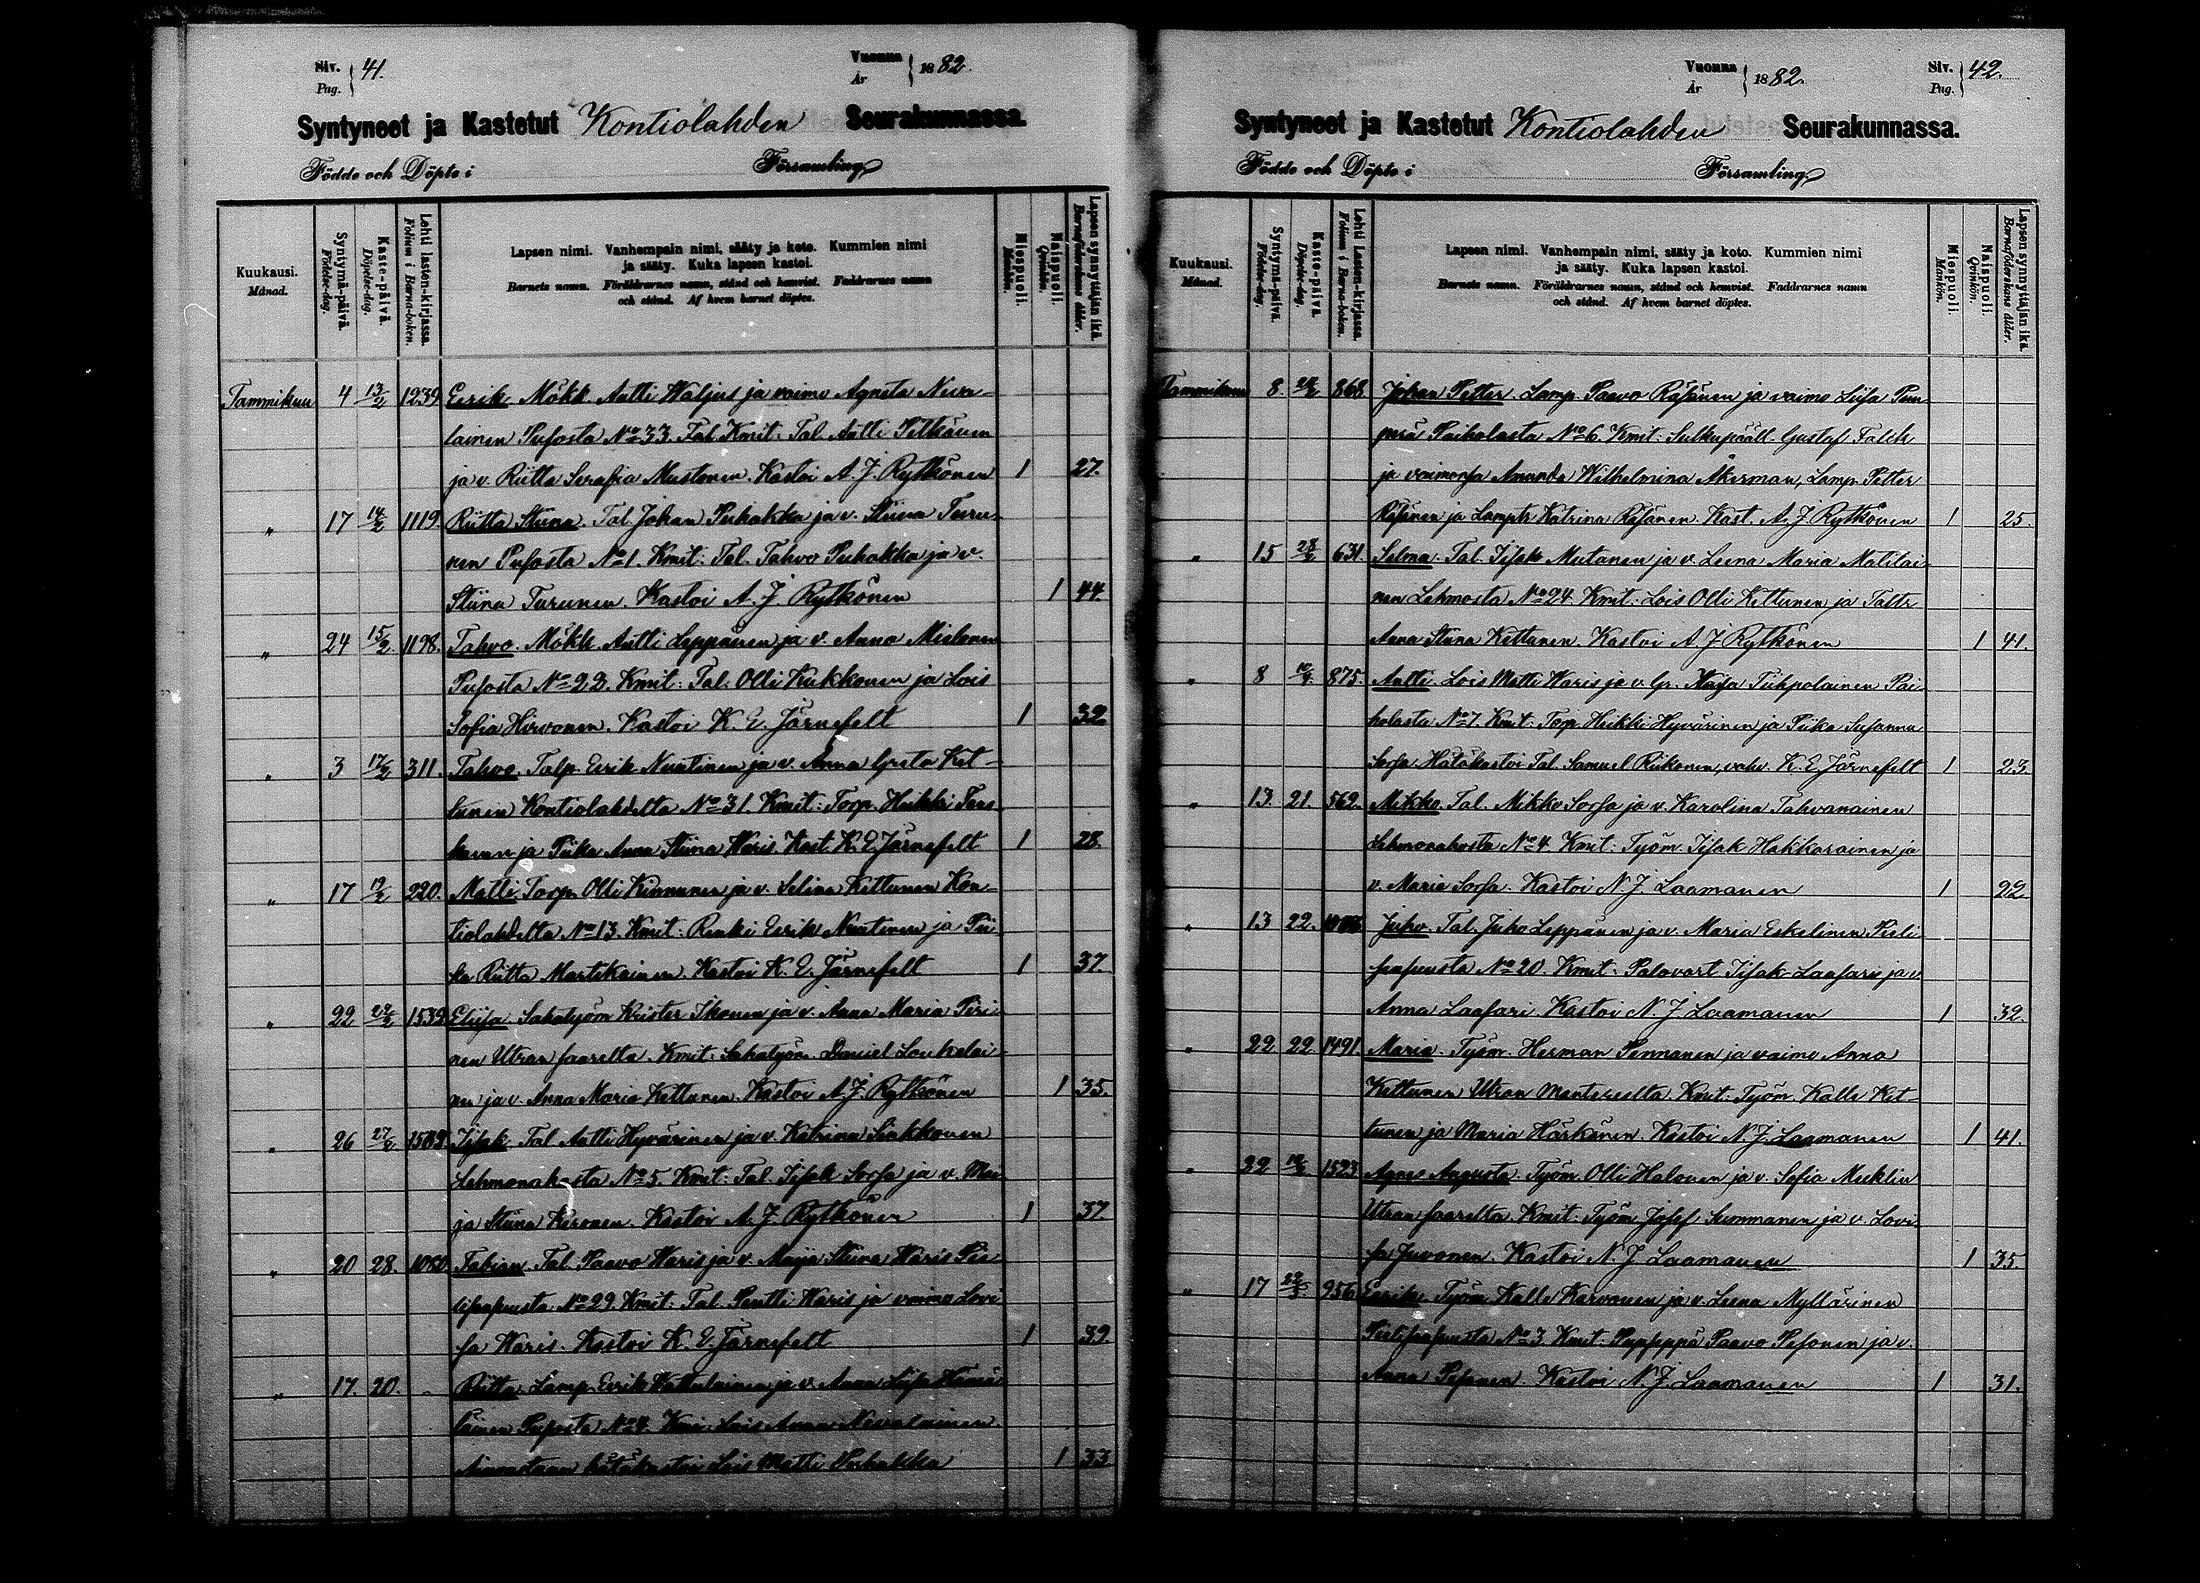 Siv. Pag. 41. Vuonna År 1882
Syntyneet ja Kastetut Kontiolahden Seurakunnassa.
Födde och Döpte i Församling
Kuukausi. Månad.
Syntymä-päivä. Födelse-dag.
Kaste-päivä. Döpelse-dag.
Lehti lasten-kirjassa. Folium i Barna-boken.
Lapsen nimi. Vanhempain nimi, sääty ja koto. Kummien nimi
ja sääty. Kuka lapsen kastoi.
Barnets namn. Föräldrarnes namn, stånd och hemvist. Faddrarnes namn
och stånd. Af hvem barnet döptes.
Miespuoli. Mankön.
Naispuoli. Qvinkön.
Lapsen synnyttäjän ikä. Barnaföderskans ålder.
Tammikuu 4 13/2 1239. Eerik Mökk. Antti Waljus ja vaimo Agneta Neva-
lainen Pusosta No 33. Tal. Kmit: Tal. Antti Pitkänen
ja v. Riitta Serafia Mustonen. Kastoi A. J. Rytkönen 1 27.
" 17 14/2 1119. Riitta Stiina. Tal Johan Puhakka ja v. Stiina Turu-
nen Pusosta No 1. Kmit: Tal. Tahvo Puhakka ja v.
Stiina Turunen. Kastoi A. J. Rytkönen 1 44.
" 24 15/2 1198. Tahvo. Mökk. Antti Leppänen ja v. Anna Mielonen
Pusosta No 22. Kmit: Tal. Olli Kukkonen ja Lois
Sofia Hirvonen. Kastoi K. E. Järnefelt 1 32
" 3 17/2 311. Tahvo. Talp. Eerik Nuutinen ja v. Anna Greta Ket-
tunen Kontiolahdelta No 31. Kmit: Torp. Heikki Tars-
kanen ja Piika Anna Stiina Haris. Kast. K. E. Järnefelt 1 28.
" 17 19/2 220. Matti. Torp. Olli Kinnunen ja v. Selina Kettunen Kon-
tiolahdelta No 13. Kmit: Renki Eerik Nuutinen ja Pii-
ka Riitta Martikainen. Kastoi K. E. Järnefelt 1 37.
" 22 27/2 1532 Eliisa. Sahatyöm Krister Ikonen ja v. Anna Maria Piri-
nen Utran saarelta. Kmit: Sahatyöm. Daniel Loukolai-
nen ja v. Anna Maria Kettunen. Kastoi A. J. Rytkönen 1 35.
" 26 27/2 Iisak. Tal Antti Hyvärinen ja v. Katrina Siakkonen
Lehmonahosta No 5. Kmit: Tal. Iisak Sorsa ja v. Mar-
ja Stiina Keronen. Kastoi A. J. Rytkönen 1 37.
" 20 28. 1060 Fabian. Tal. Paavo Haris ja v. Maija Stiina Haris Pie-
lisensuusta No 29. Kmit: Tal. Pentti Haris ja vaimo Lovi-
sa Haris. Kastoi K. E. Järnefelt 1 39.
" 17. 20. - Riitta. Lamp. Eerik Hattulainen ja v. Anna Liisa Hämä-
läinen Pusosta No 4. Kmi: Lois Anna Nevalainen
Ainoastaan hätäkastoi Lois Matti Puhakka 1 33
Vuonna År 1882. Siv. Pag. 42.
Syntyneet ja Kastetut Kontiolahden Seurakunnassa.
Födde och Döpte i Församling
Kuukausi. Månad.
Syntymä-päivä. Födelse-dag.
Kaste-päivä. Döpelse-dag.
Lehti Lasten-kirjassa. Folium i Barna-boken.
Lapsen nimi. Vanhempain nimi, sääty ja koto. Kummien nimi
ja sääty. Kuka lapsen kastoi.
Barnets namn. Föräldrarnes namn, stånd och hemvist. Faddrarnes namn
och stånd. Af hvem barnet döptes.
Miespuoli. Mankön.
Naispuoli. Qvinkön.
Lapsen synnyttäjän ikä. Barnaföderskans ålder.
Tammikuu 8. 868 Johan Petter. Lamp. Paavo Räsänen ja vaimo Liisa Pum-
Paiholasta No 6. Kmit: Sulkupääll. Gustaf Falck
ja vaimonsa Amanda Wilhelmina Åkerman, Lamp. Petter
Räsänen ja Lamptr Katrina Räsänen. Kast. A. J. Rytkönen 1 25.
" 15 631. Selma. Tal. Iisak Mutanen ja v. Leena Maria Matilai-
nen Lehmosta No 24. Kmit: Lois Olli Kettunen ja Taltr
Anna Stiina Kettunen. Kastoi A. J. Rytkönen 1 41.
" 8 875. Antti. Lois Matti Haris ja v. Gr. Kaisa Tuhpolainen Pai-
holasta No 7. Kmit: Torp. Heikki Hyvärinen ja Piika Susanna
Sorsa Hätäkastoi Tal. Samuel Riikonen, vahv. K. E. Järnefelt 1 23.
" 13. 21. 562. Mikko. Tal. Mikko Sorsa ja v. Karolina Tahvanainen
Lehmonahosta No 4. Kmit: Työm. Iisak Hakkarainen ja
v. Maria Sorsa. Kastoi N. J. Laamanen 1 22
" 13 22. Juho. Tal. Juho Leppänen ja v. Maria Eskelinen Pieli-
sensuusta No 20. Kmit: Palovart. Iisak Laasari ja v.
Anna Laasari. Kastoi N. J. Laamanen 1 32.
" 22 22 1491 Maria. Työm. Herman Pennanen ja vaimo Anna
Kettunen Utran Mantereelta. Kmit: Työm. Kalle Ket-
tunen ja Maria Härkönen. Kastoi N. J. Laamanen 1 41.
" 22 1523 Agnes Augusta. Työm. Olli Halonen ja v. Sofia Meeklin
Utran saarelta. Kmit: Työm. Josef Summanen ja v. Lovi-
sa Juvonen. Kastoi N. J. Laamanen 1 35.
" 17 22/3 956 Eerik. Työm Kalle Karvonen ja v. Leena Myllärinen
Pielisensuusta No 3. Kmit: Pupseppä Paavo Pesonen ja v.
Anna Pesonen. Kastoi N. J. Laamanen 1 31.